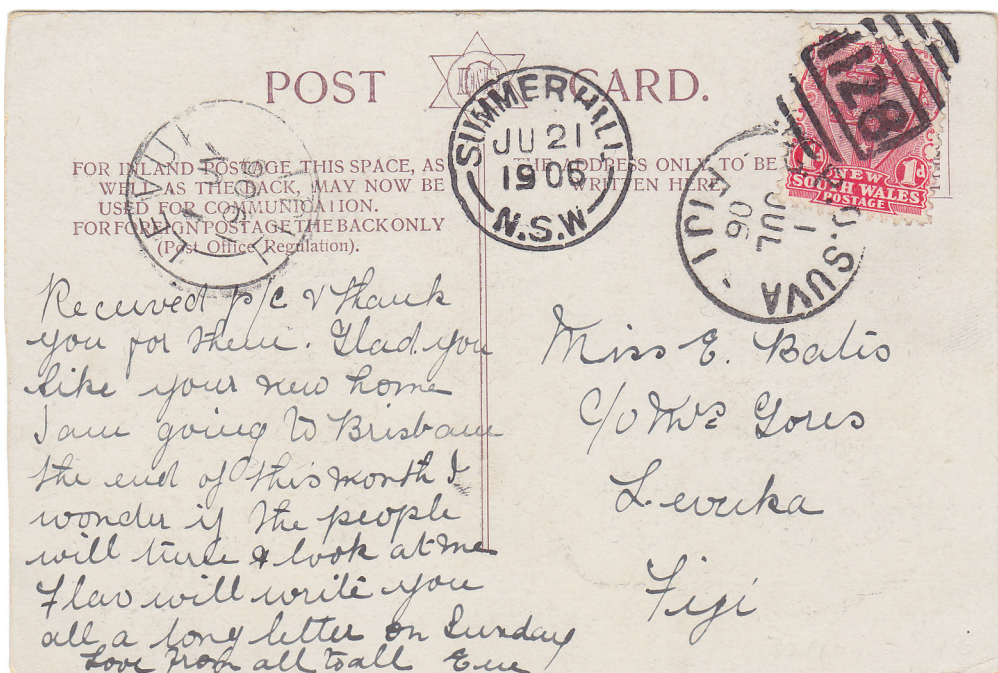 POST CARD.
FOR INLAND POSTAGE THIS SPACE, AS
WELL AS THE BACK, MAY NOW BE
USED FOR COMMUNICATION.
FOR FOREIGN POSTAGE THE BACK ONLY
(Post Office Regulation).
THE ADDRESS ONLY TO BE
WRITTEN HERE
SUMMER HILL
JU 21
1906
N.S.W
128
1d
NEW
SOUTH WALES
POSTAGE
G.P.O. SUVA
1
JUL
06
FIJI
FIJI
Received p/c & thank
you for them. Glad you
like your new home
I am going to Brisbane
the end of this month I
wonder if the people
will turn & look at me
Flav will write you
all a long letter on Sunday
Love from all to all
Miss E. Batis
c/o Mrs Gores
Levuka
Fiji